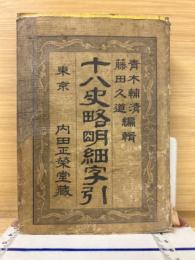 青木輔清
藤田久道 編輯
十八史略明細字引
東京 内田正榮堂藏